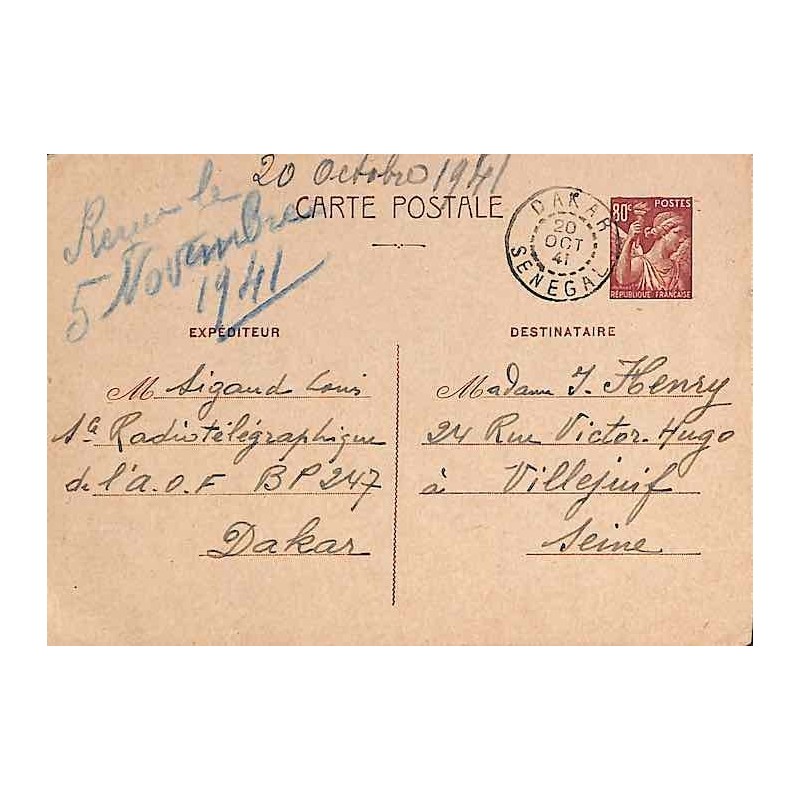 20 Octobre 1941
CARTE POSTALE
Reçu le
5 Novembre
1941
DAKAR
20
OCT
41
SENEGAL
80c POSTES
RÉPUBLIQUE FRANÇAISE
EXPÉDITEUR
M Sigaud Louis
Sté Radiotélégraphique
de l'A.O.F BP 247
Dakar
DESTINATAIRE
Madame J. Henry
24 Rue Victor-Hugo
à Villejuif
Seine